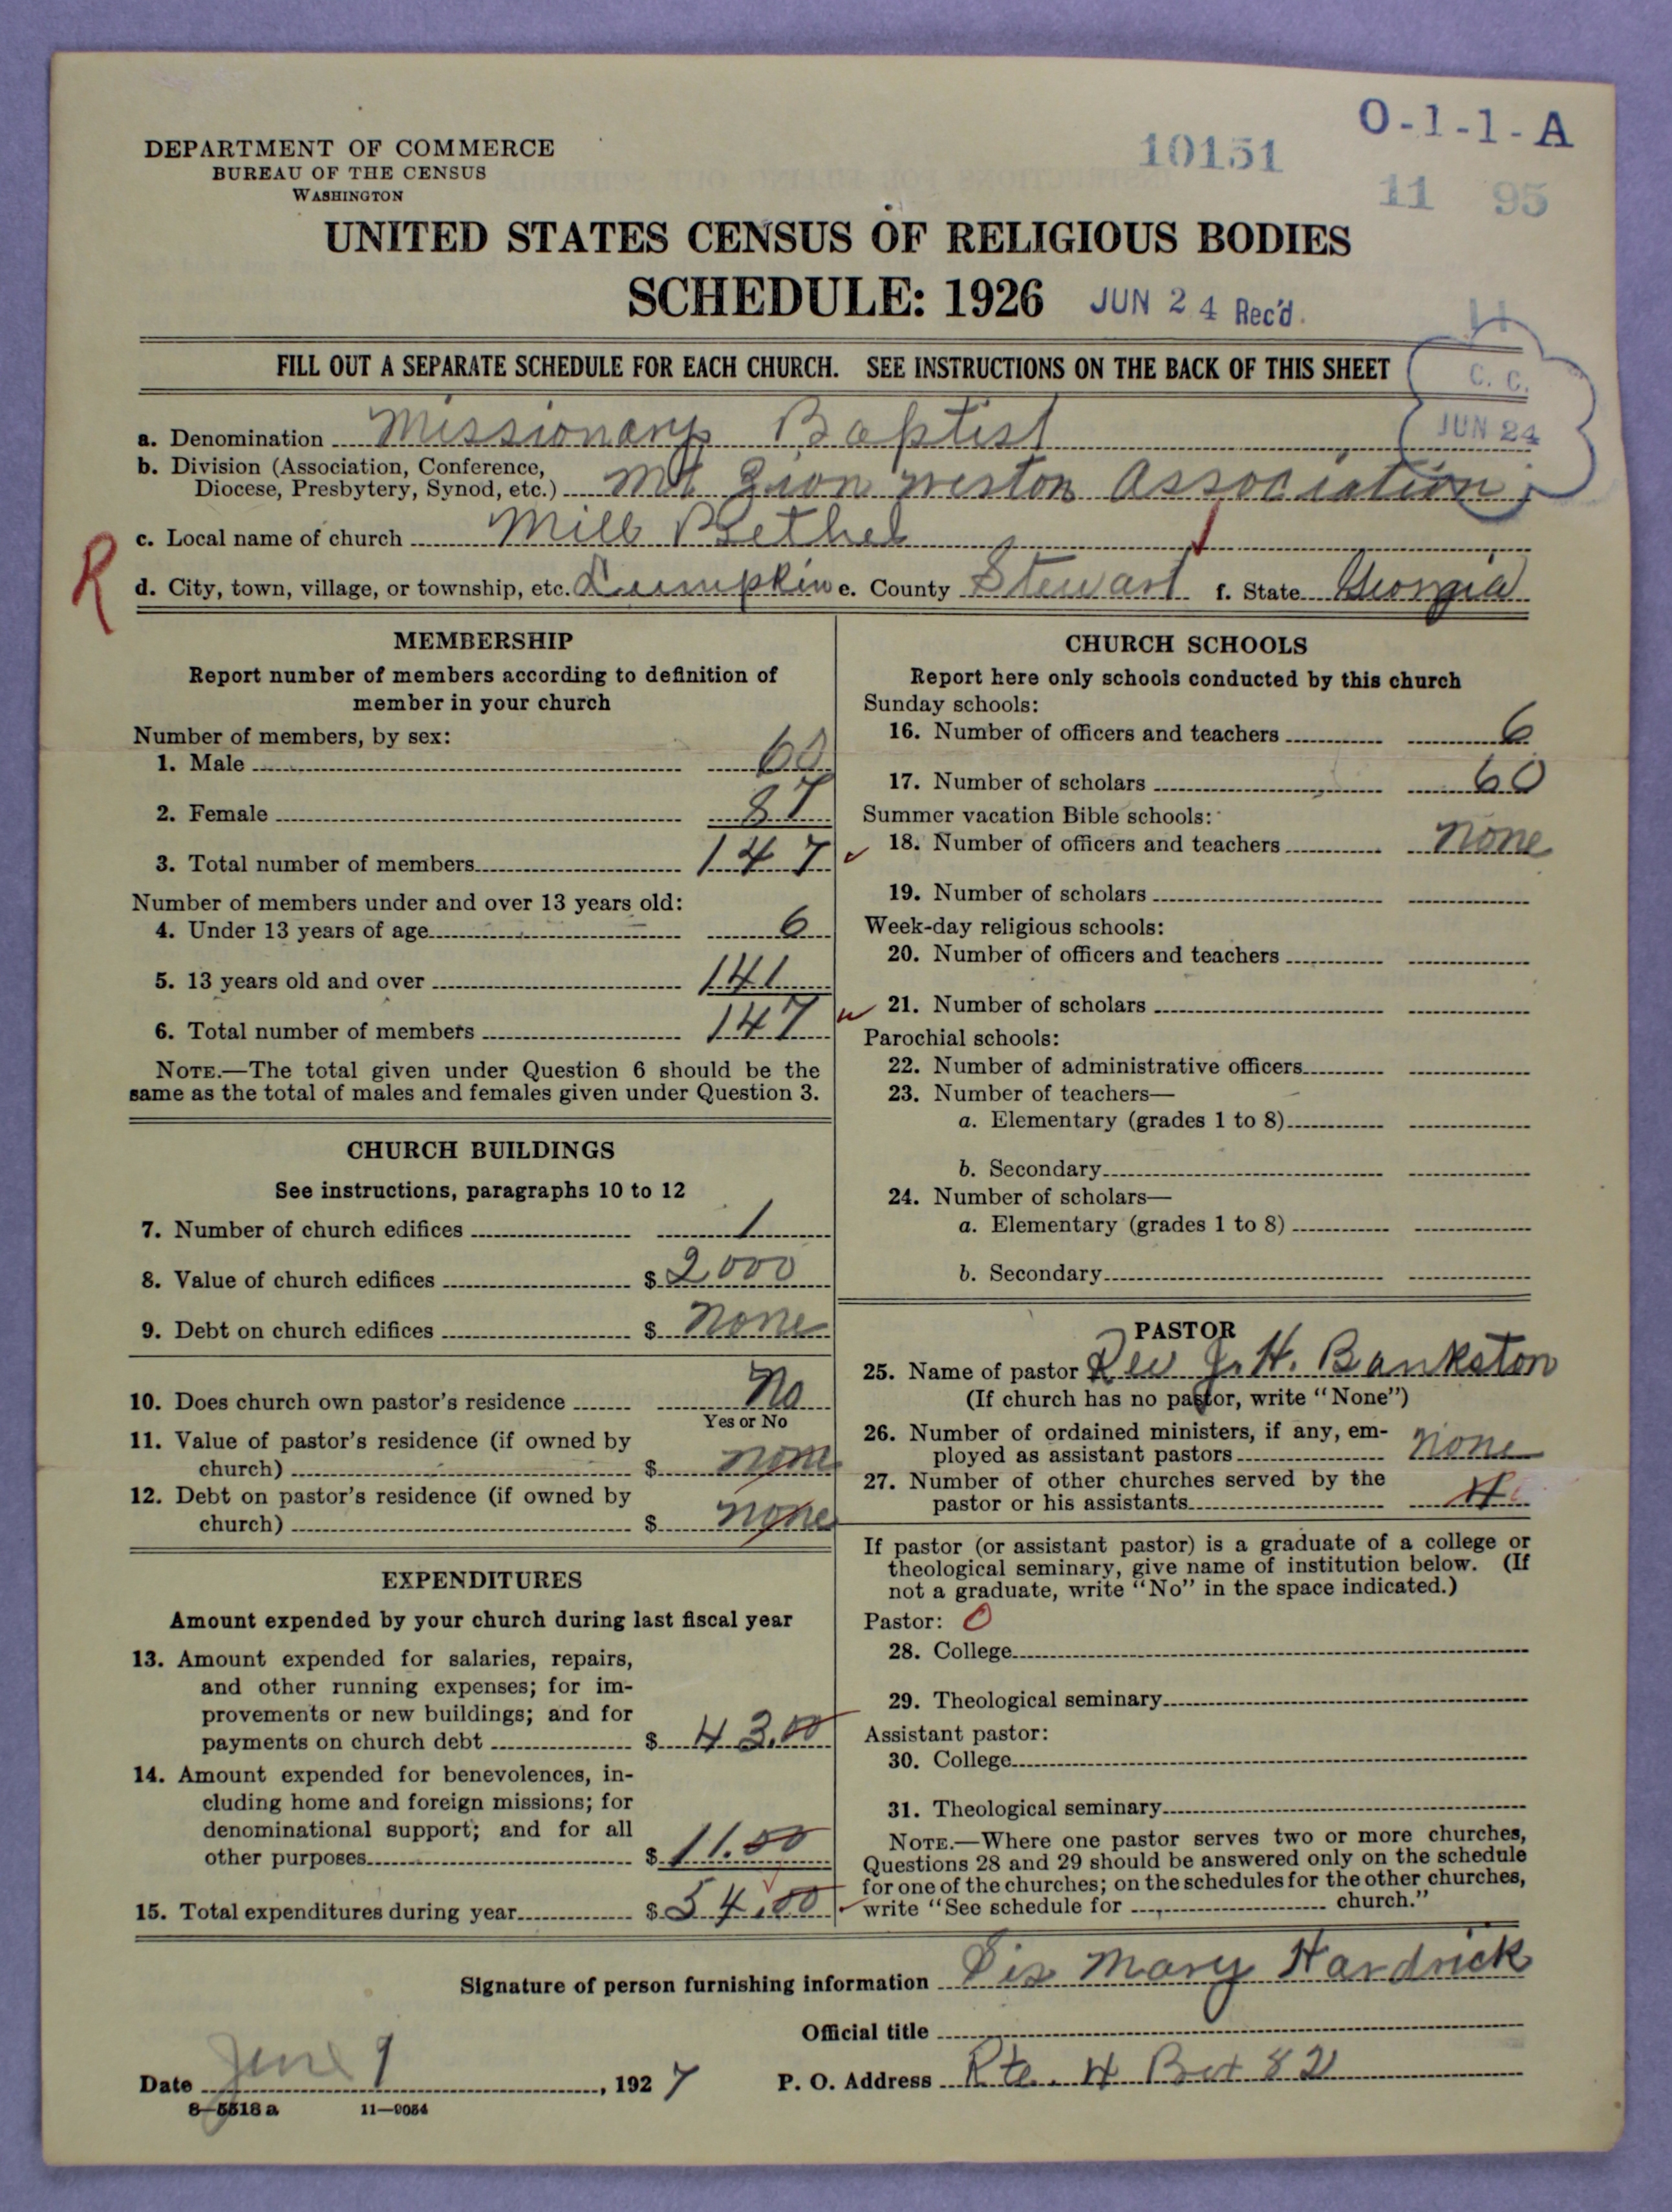 DEPARTMENT OF COMMERCE
BUREAU OF THE CENSUS
WASHINGTON
10151
O-1-1-A
11 95
UNITED STATES CENSUS OF RELIGIOUS BODIES
SCHEDULE: 1926 JUN 24 Rec'd.
FILL OUT A SEPARATE SCHEDULE FOR EACH CHURCH. SEE INSTRUCTIONS ON THE BACK OF THIS SHEET
C. C.
JUN 24
a. Denomination Missionary Baptist
b. Division (Association, Conference,
Diocese, Presbytery, Synod, etc.) Mt Zion Weston Association
c. Local name of church Mill Bethel
R
d. City, town, village, or township, etc. Lumpkin e. County Stewart f. State Georgia
MEMBERSHIP
Report number of members according to definition of
member in your church
Number of members, by sex:
1. Male 60
2. Female 87
3. Total number of members 147
Number of members under and over 13 years old:
4. Under 13 years of age 6
5. 13 years old and over 141
6. Total number of members 147
NOTE.—The total given under Question 6 should be the
same as the total of males and females given under Question 3.
CHURCH BUILDINGS
See instructions, paragraphs 10 to 12
7. Number of church edifices 1
8. Value of church edifices $ 2000
9. Debt on church edifices $ none
10. Does church own pastor's residence No
Yes or No
11. Value of pastor's residence (if owned by
church) $ none
12. Debt on pastor's residence (if owned by
church) $ none
EXPENDITURES
Amount expended by your church during last fiscal year
13. Amount expended for salaries, repairs,
and other running expenses; for im-
provements or new buildings; and for
payments on church debt $ 43.00
14. Amount expended for benevolences, in-
cluding home and foreign missions; for
denominational support; and for all
other purposes $ 11.00
15. Total expenditures during year $ 54.00
CHURCH SCHOOLS
Report here only schools conducted by this church
Sunday schools:
16. Number of officers and teachers 6
17. Number of scholars 60
Summer vacation Bible schools:
18. Number of officers and teachers none
19. Number of scholars
Week-day religious schools:
20. Number of officers and teachers
21. Number of scholars
Parochial schools:
22. Number of administrative officers
23. Number of teachers—
a. Elementary (grades 1 to 8)
b. Secondary
24. Number of scholars—
a. Elementary (grades 1 to 8)
b. Secondary
PASTOR
25. Name of pastor Rev J. H. Bankston
(If church has no pastor, write "None")
26. Number of ordained ministers, if any, em-
ployed as assistant pastors none
27. Number of other churches served by the
pastor or his assistants
If pastor (or assistant pastor) is a graduate of a college or
theological seminary, give name of institution below. (If
not a graduate, write "No" in the space indicated.)
Pastor: 0
28. College
29. Theological seminary
Assistant pastor:
30. College
31. Theological seminary
NOTE.—Where one pastor serves two or more churches,
Questions 28 and 29 should be answered only on the schedule
for one of the churches; on the schedules for the other churches,
write "See schedule for church."
Signature of person furnishing information Sis Mary Hardrick
Official title
Date June 9, 1927 P. O. Address Rte. 4 Box 82
8-5518 a 11-9054